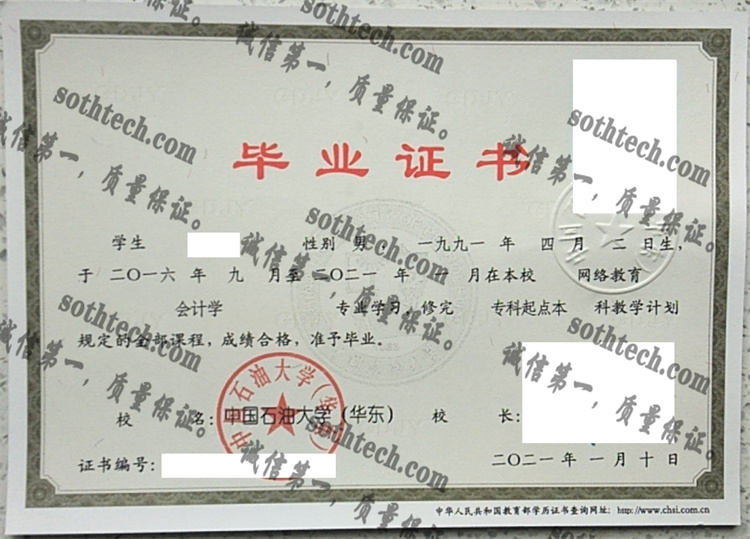 毕业证书
学生 性别 男，一九九一年 四月 二日生，
于二〇一六年 九月至二〇二一年 一月在本校 网络教育
会计学 专业学习，修完 专科起点本科教学计划
规定的全部课程，成绩合格，准予毕业。
校 名：中国石油大学（华东） 校 长：
中国石油大学（华东）
证书编号：
二〇二一年一月十日
中华人民共和国教育部学历证书查询网址：http://www.chsi.com.cn
sothtech.com
诚信第一，质量保证。
sothtech.com
诚信第一，质量保证。
sothtech.com
诚信第一，质量保证。
sothtech.com
诚信第一，质量保证。
sothtech.com
诚信第一，质量保证。
sothtech.com
诚信第一，质量保证。
sothtech.com
诚信第一，质量保证。
sothtech.com
诚信第一，质量保证。